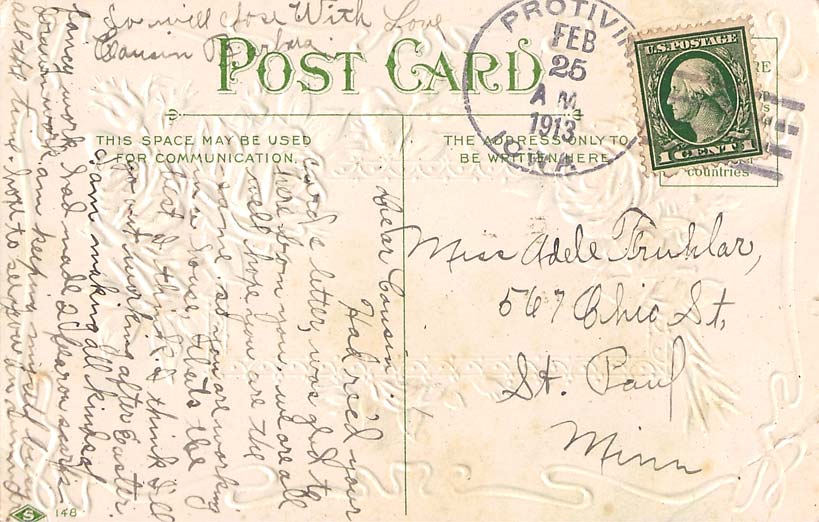 So will close With Love
Cousin Barbara
POST CARD
THIS SPACE MAY BE USED
FOR COMMUNICATION.
THE ADDRESS ONLY TO
BE WRITTEN HERE
PROTIVIN
FEB
25
A M
1913
IOWA
U.S. POSTAGE
1 CENT 1
countries
Dear Cousin:
Had rec'd your
cards & letter, was glad to
here from you. we are all
well hope you are the
same. so you are working
in a house that's the
best I think. I think I'll
go out working after Easter.
I am making all kinds of
fancy work had made 2 scarfs
am keeping myself busy
all the time. hope to see you in a
Miss Adele Truhlar,
567 Ohio St,
St. Paul
Minn
S 148